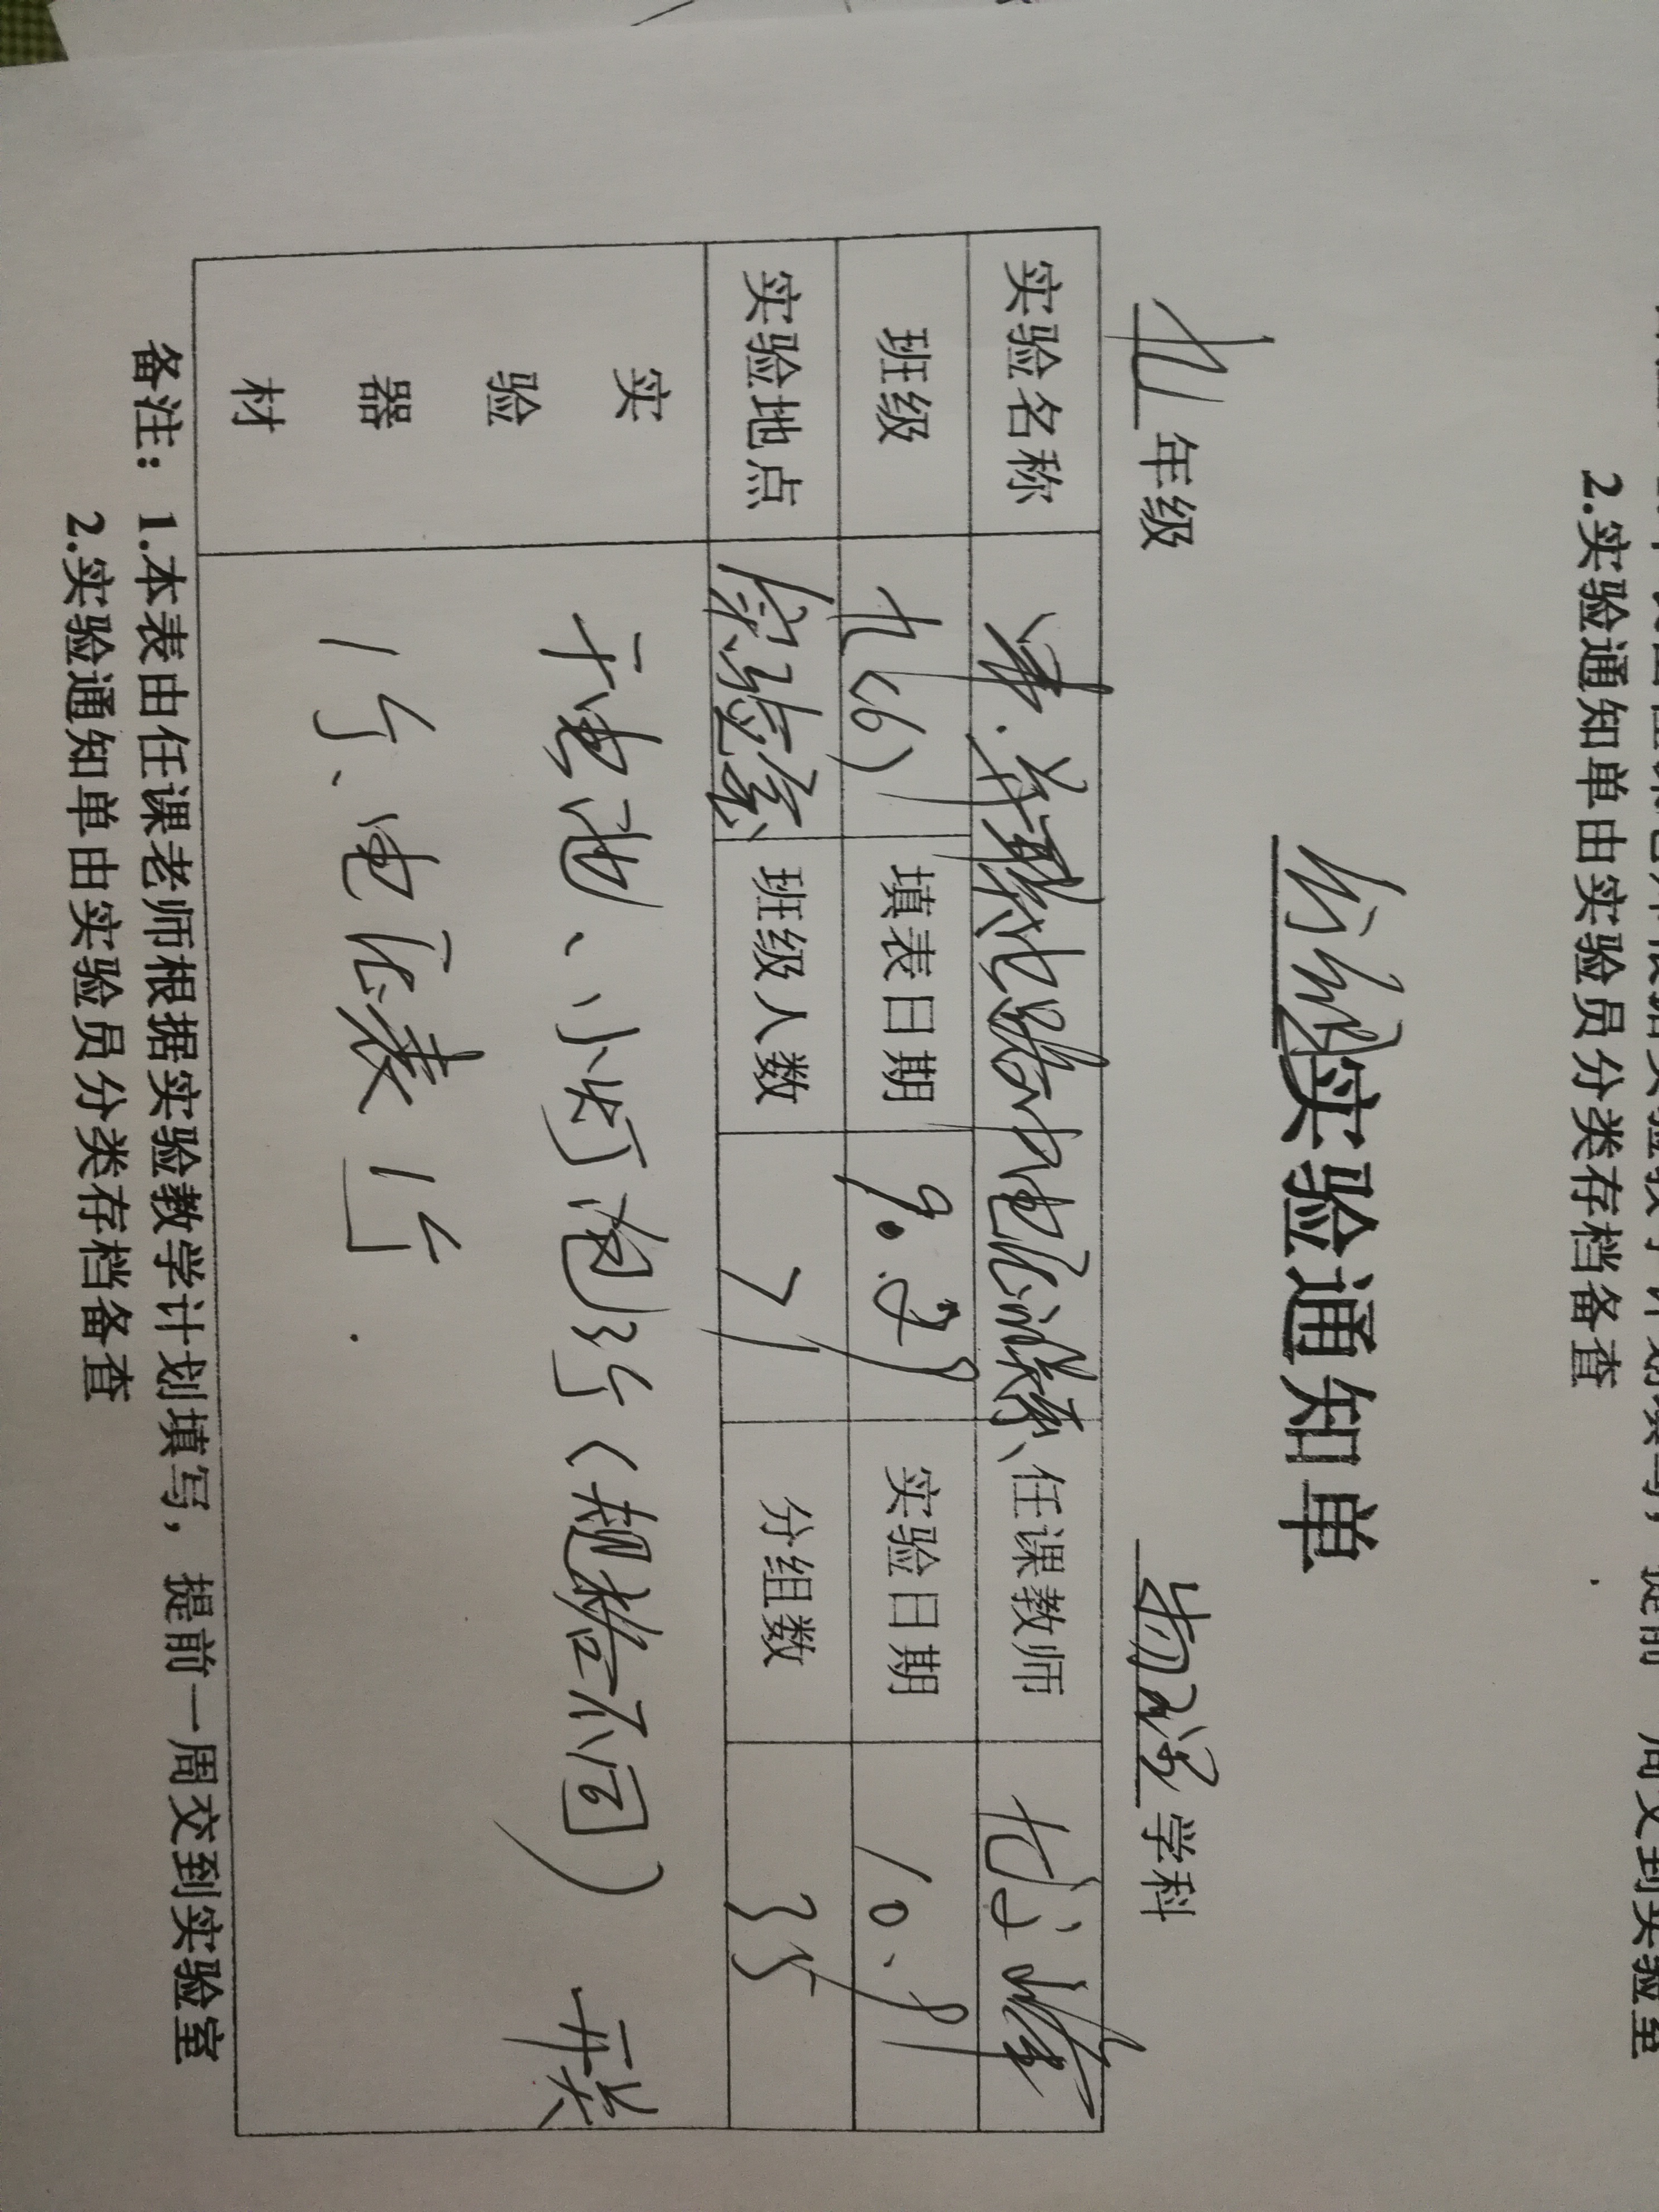 2.实验通知单由实验员分类存档备查
分组实验通知单
九年级 物理学科
实验名称 串.并联电路中电压规律 任课教师
班级 九(6) 填表日期 9.29 实验日期 10.9
实验地点 实验室 班级人数 71 分组数 35
实验器材 干电池、小灯泡3个(规格不同) 开关
1个、电压表1个.
备注：1.本表由任课老师根据实验教学计划填写，提前一周交到实验室
2.实验通知单由实验员分类存档备查